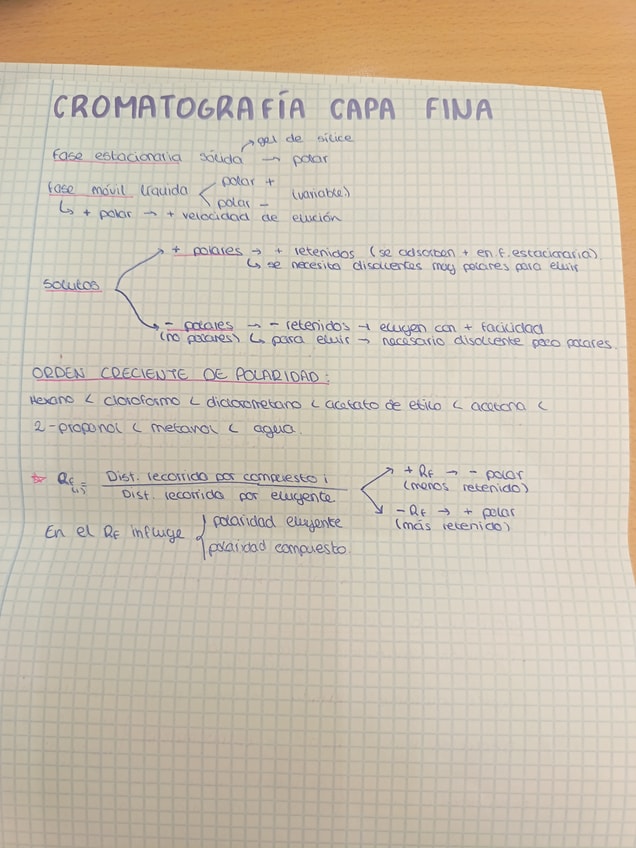 CROMATOGRAFÍA CAPA FINA
→ gel de sílice
Fase estacionaria sólida → polar
Fase móvil líquida < polar + (variable)
polar -
↳ + polar → + velocidad de elución
Solutos
+ polares → + retenidos (se adsorben + en f. estacionaria)
↳ se necesita disolventes muy polares para eluir
- polares → - retenidos → eluyen con + facilidad
(no polares) ↳ para eluir → necesario disolvente poco polares.
ORDEN CRECIENTE DE POLARIDAD:
Hexano < cloroformo < diclorometano < acetato de etilo < acetona <
2-propanol < metanol < agua.
* RF(i) = Dist. recorrido por compuesto i
Dist. recorrido por eluyente.
+ RF → - polar
(menos retenido)
- RF → + polar
(más retenido)
En el RF influye { polaridad eluyente
polaridad compuesto.